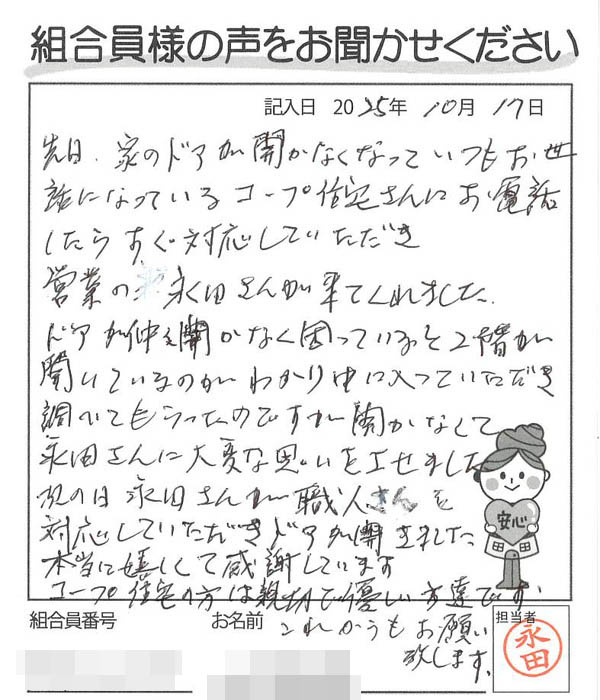 組合員様の声をお聞かせください
記入日 2025年 10月 17日
先日、家のドアが開かなくなって いつもお世
話になっている コープ住宅さんにお電話
したら すぐ対応していただき
営業の 永田さんが来てくれました。
ドアが仲々開かなく困っていると 2階が
開いているのが わかり中に入っていただき
調べてもらったのですが 開かなくて
永田さんに大変な思いをさせました
次の日 永田さんが 職人さんを
対応していただきドアが開きました
本当に嬉しくて感謝しています
コープ住宅の方は親切で優しい方達です。
これからもお願い
致します。
安心
組合員番号
お名前
担当者
永田